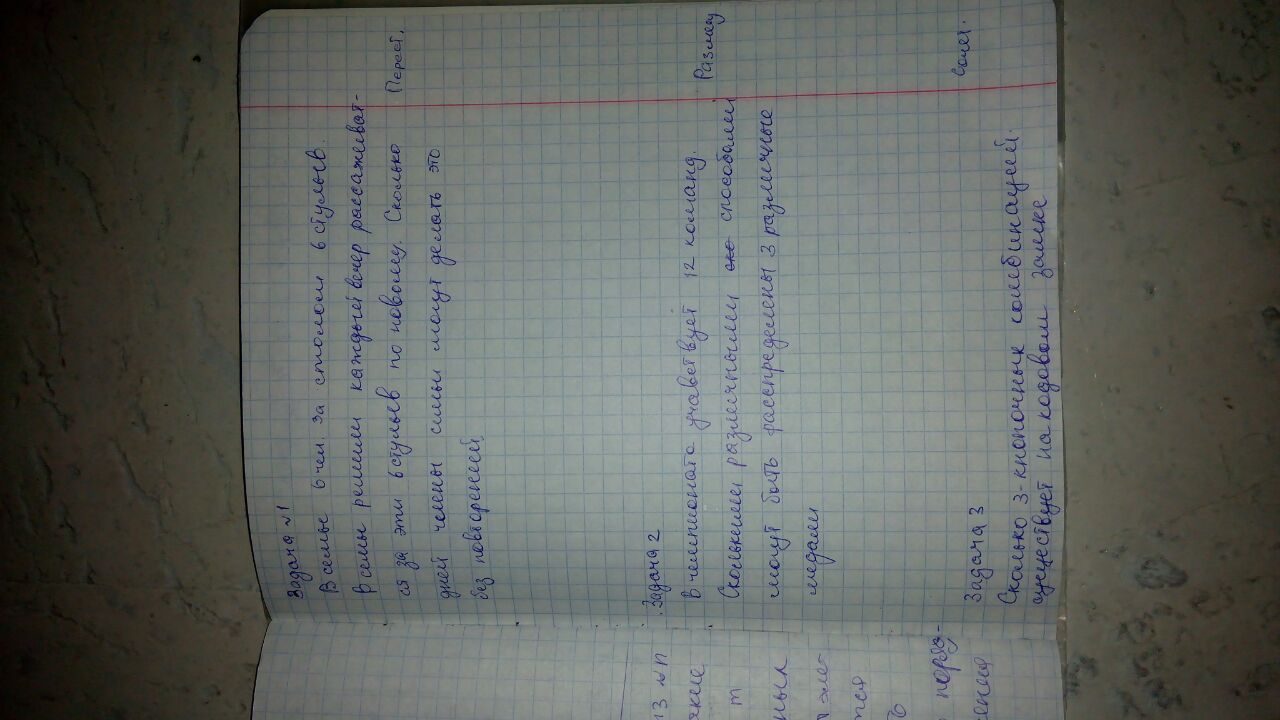 Задача №1
В семье 6 чел за столом 6 стульев.
В семьи решили каждый вечер рассаживат-
ся за эти 6 стульев по новому. Сколько
Перест.
дней члены семьи могут делать это
без повторений
Задача 2
В чемпионате учавствует 12 команд.
Размещ
Сколькими различными способами
могут быть распределены 3 различные
медали
Задача 3
Сочет.
Сколько 3-кнопочных комбинацией.
существует на кодовом замке
13
т
ся